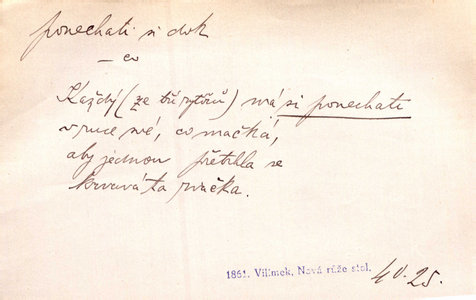 ponechati si dok
– co
Každý (ze tří rytířů) má si ponechati
v ruce své, co mačká,
aby jednou přetrhla se
krvavá ta rvačka.
1861. Vilímek, Nová růže stol.
4 V. 25.